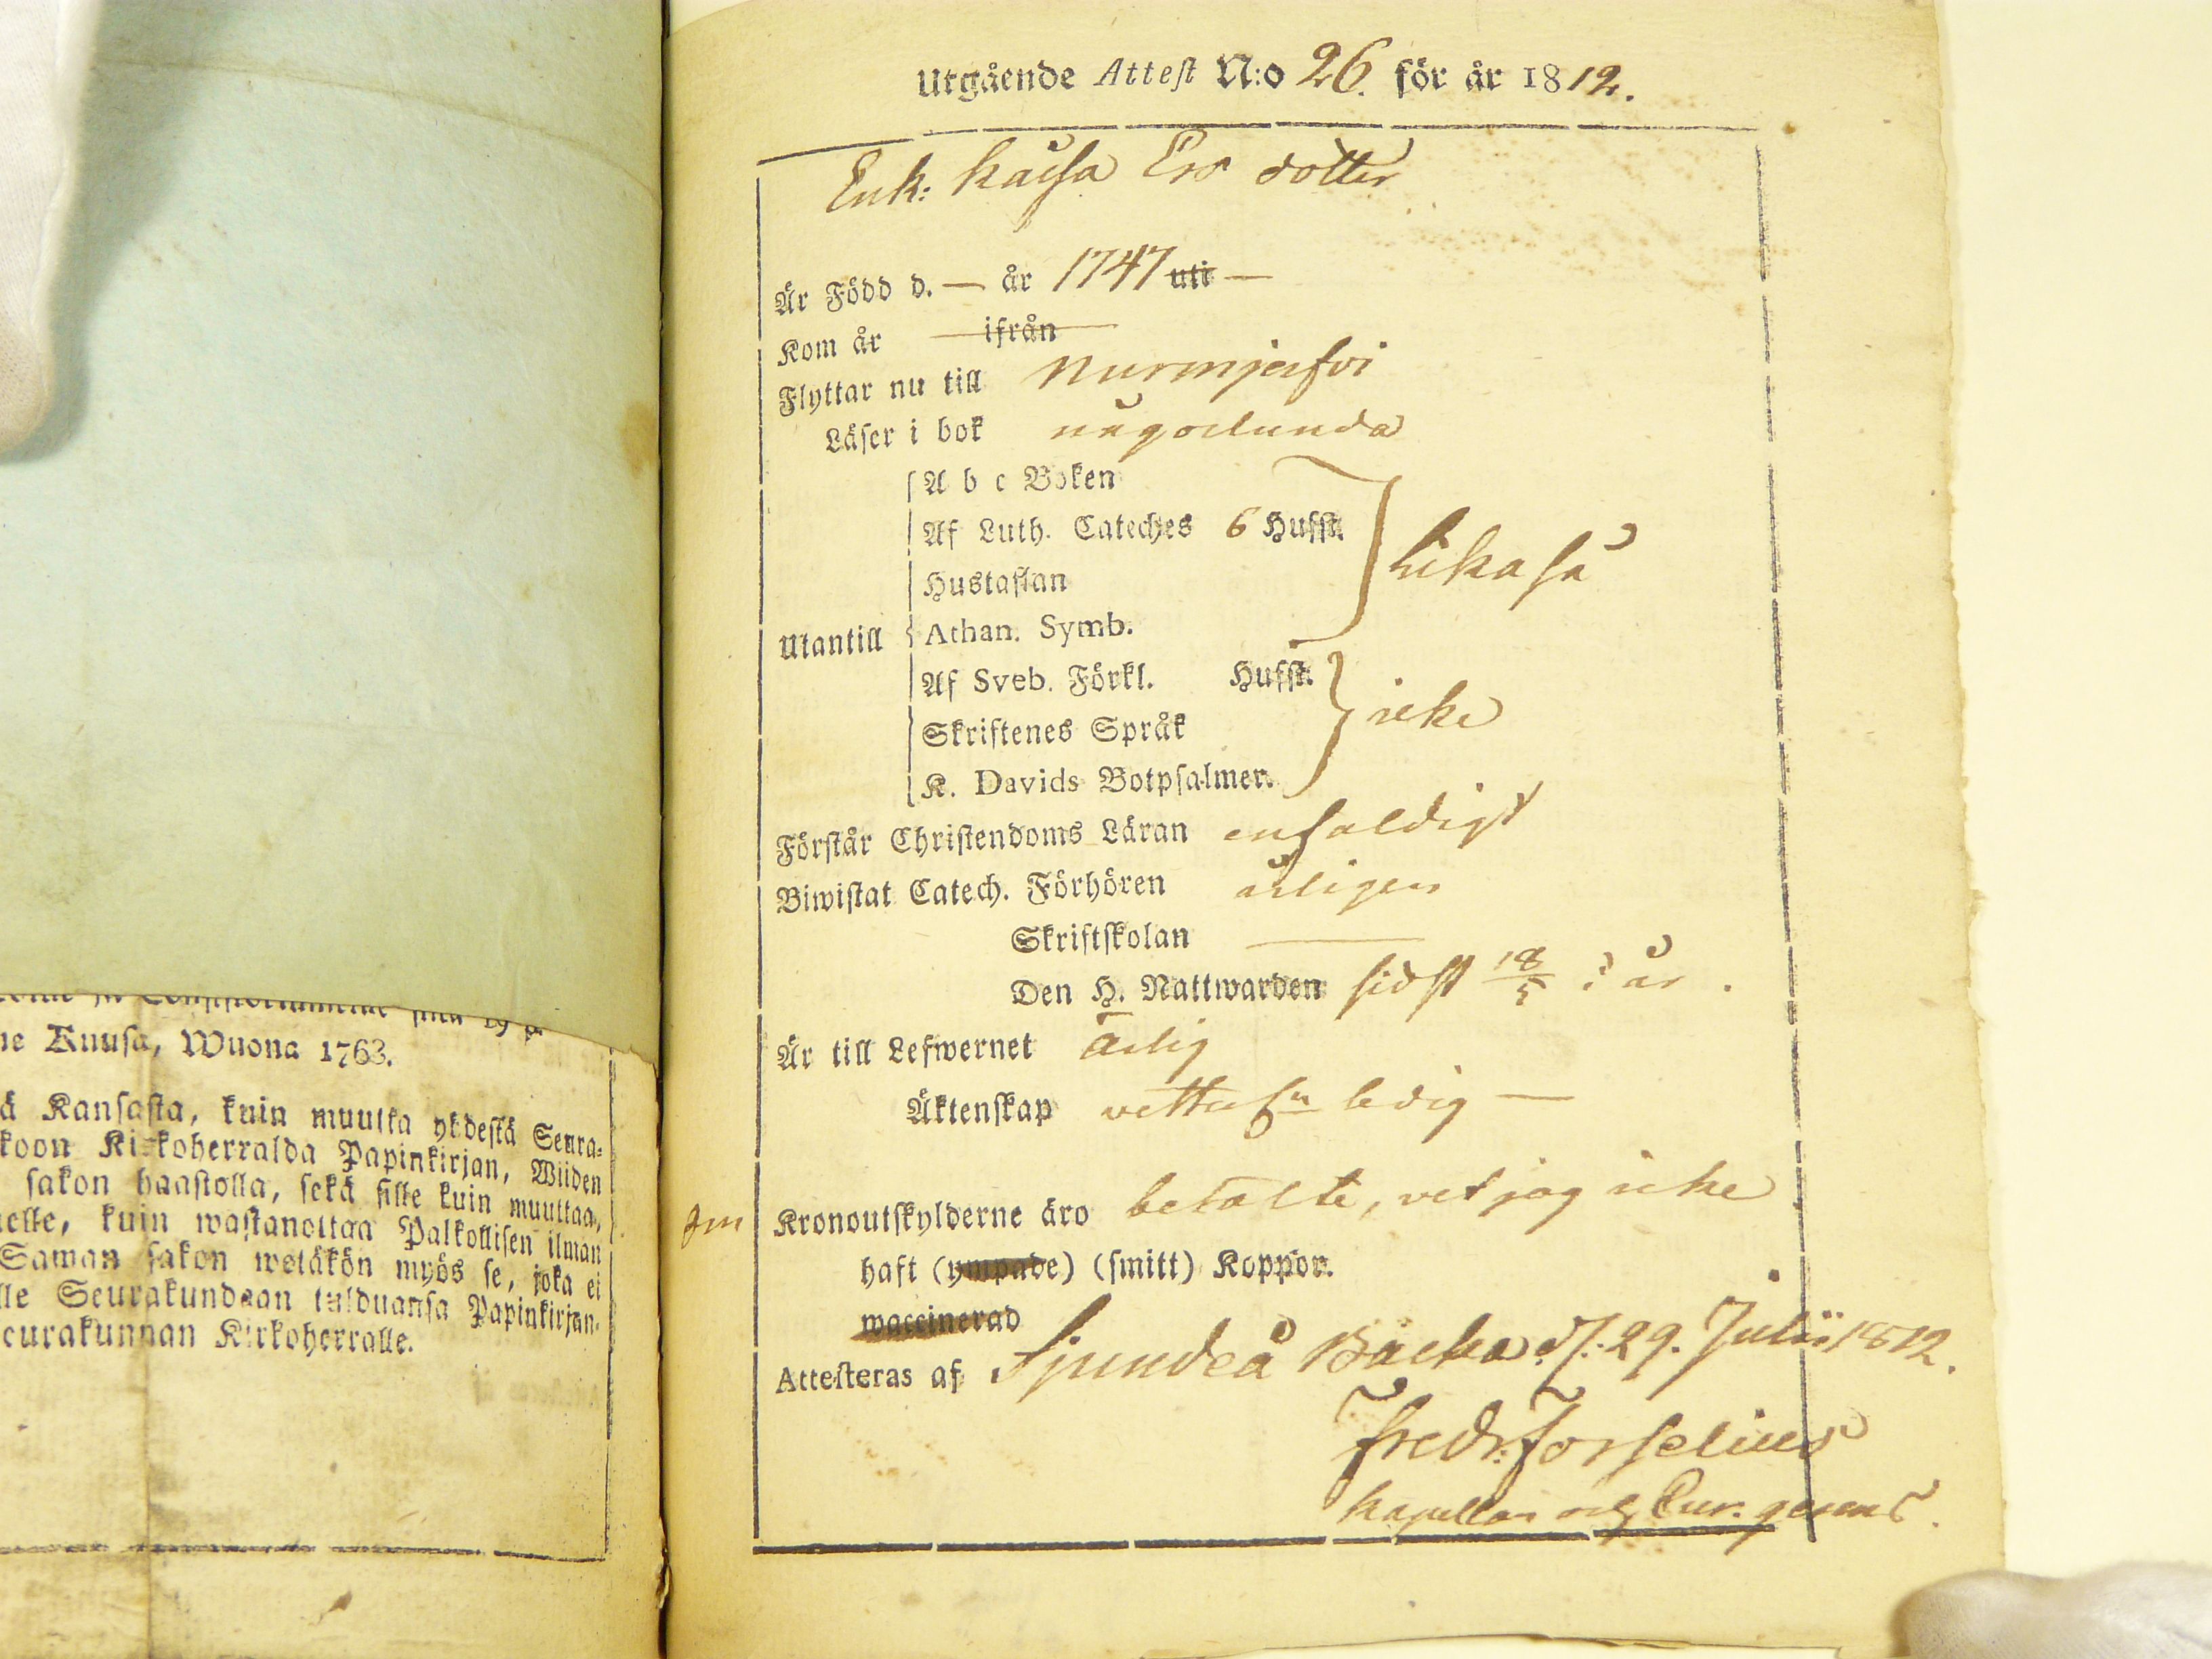 ne Kuusa, Wuona 1763.
ä Kansasta, kuin muutka yhdestä Seura-
koon Kirkoherralda Papinkirjan, Wiiden
sakon haastolla, sekä sille kuin muuttaa,
elle, kuin wastanottaa Palkollisen ilman
Saman sakon wetäkön myös se, joka ei
lle Seurakundaan tulduansa Papinkirjan-
eurakunnan Kirkoherralle.
Utgående Attest N:o 26. för år 1812.
Enk: Kaisa Ers dotter
Är Född d. — år 1747 uti —
Kom år — ifrån
Flyttar nu till Nurmijerfvi
Läser i bok någorlunda
A b c Boken
Af Luth. Cateches 6 Hufst.
Hustaflan
likaså
Utantill Athan. Symb.
Af Sveb. Förkl. Hufst.
Skriftenes Språk
icke
K. Davids Botpsalmer.
Förstår Christendoms Läran enfaldigt
Biwistat Catech. Förhören årligen
Skriftskolan —
Den H. Nattwarden sidst 18/5 i år.
Är till Lefwernet ärlig
Äktenskap ledig —
Kronoutskylderne äro betalte, vet jag icke
haft (ympade) (smitt) Koppor.
waccinerad
Attesteras af Sjundeå Bäcka d. 29. Julii 1812.
Fredr: Forselius
Kapellan